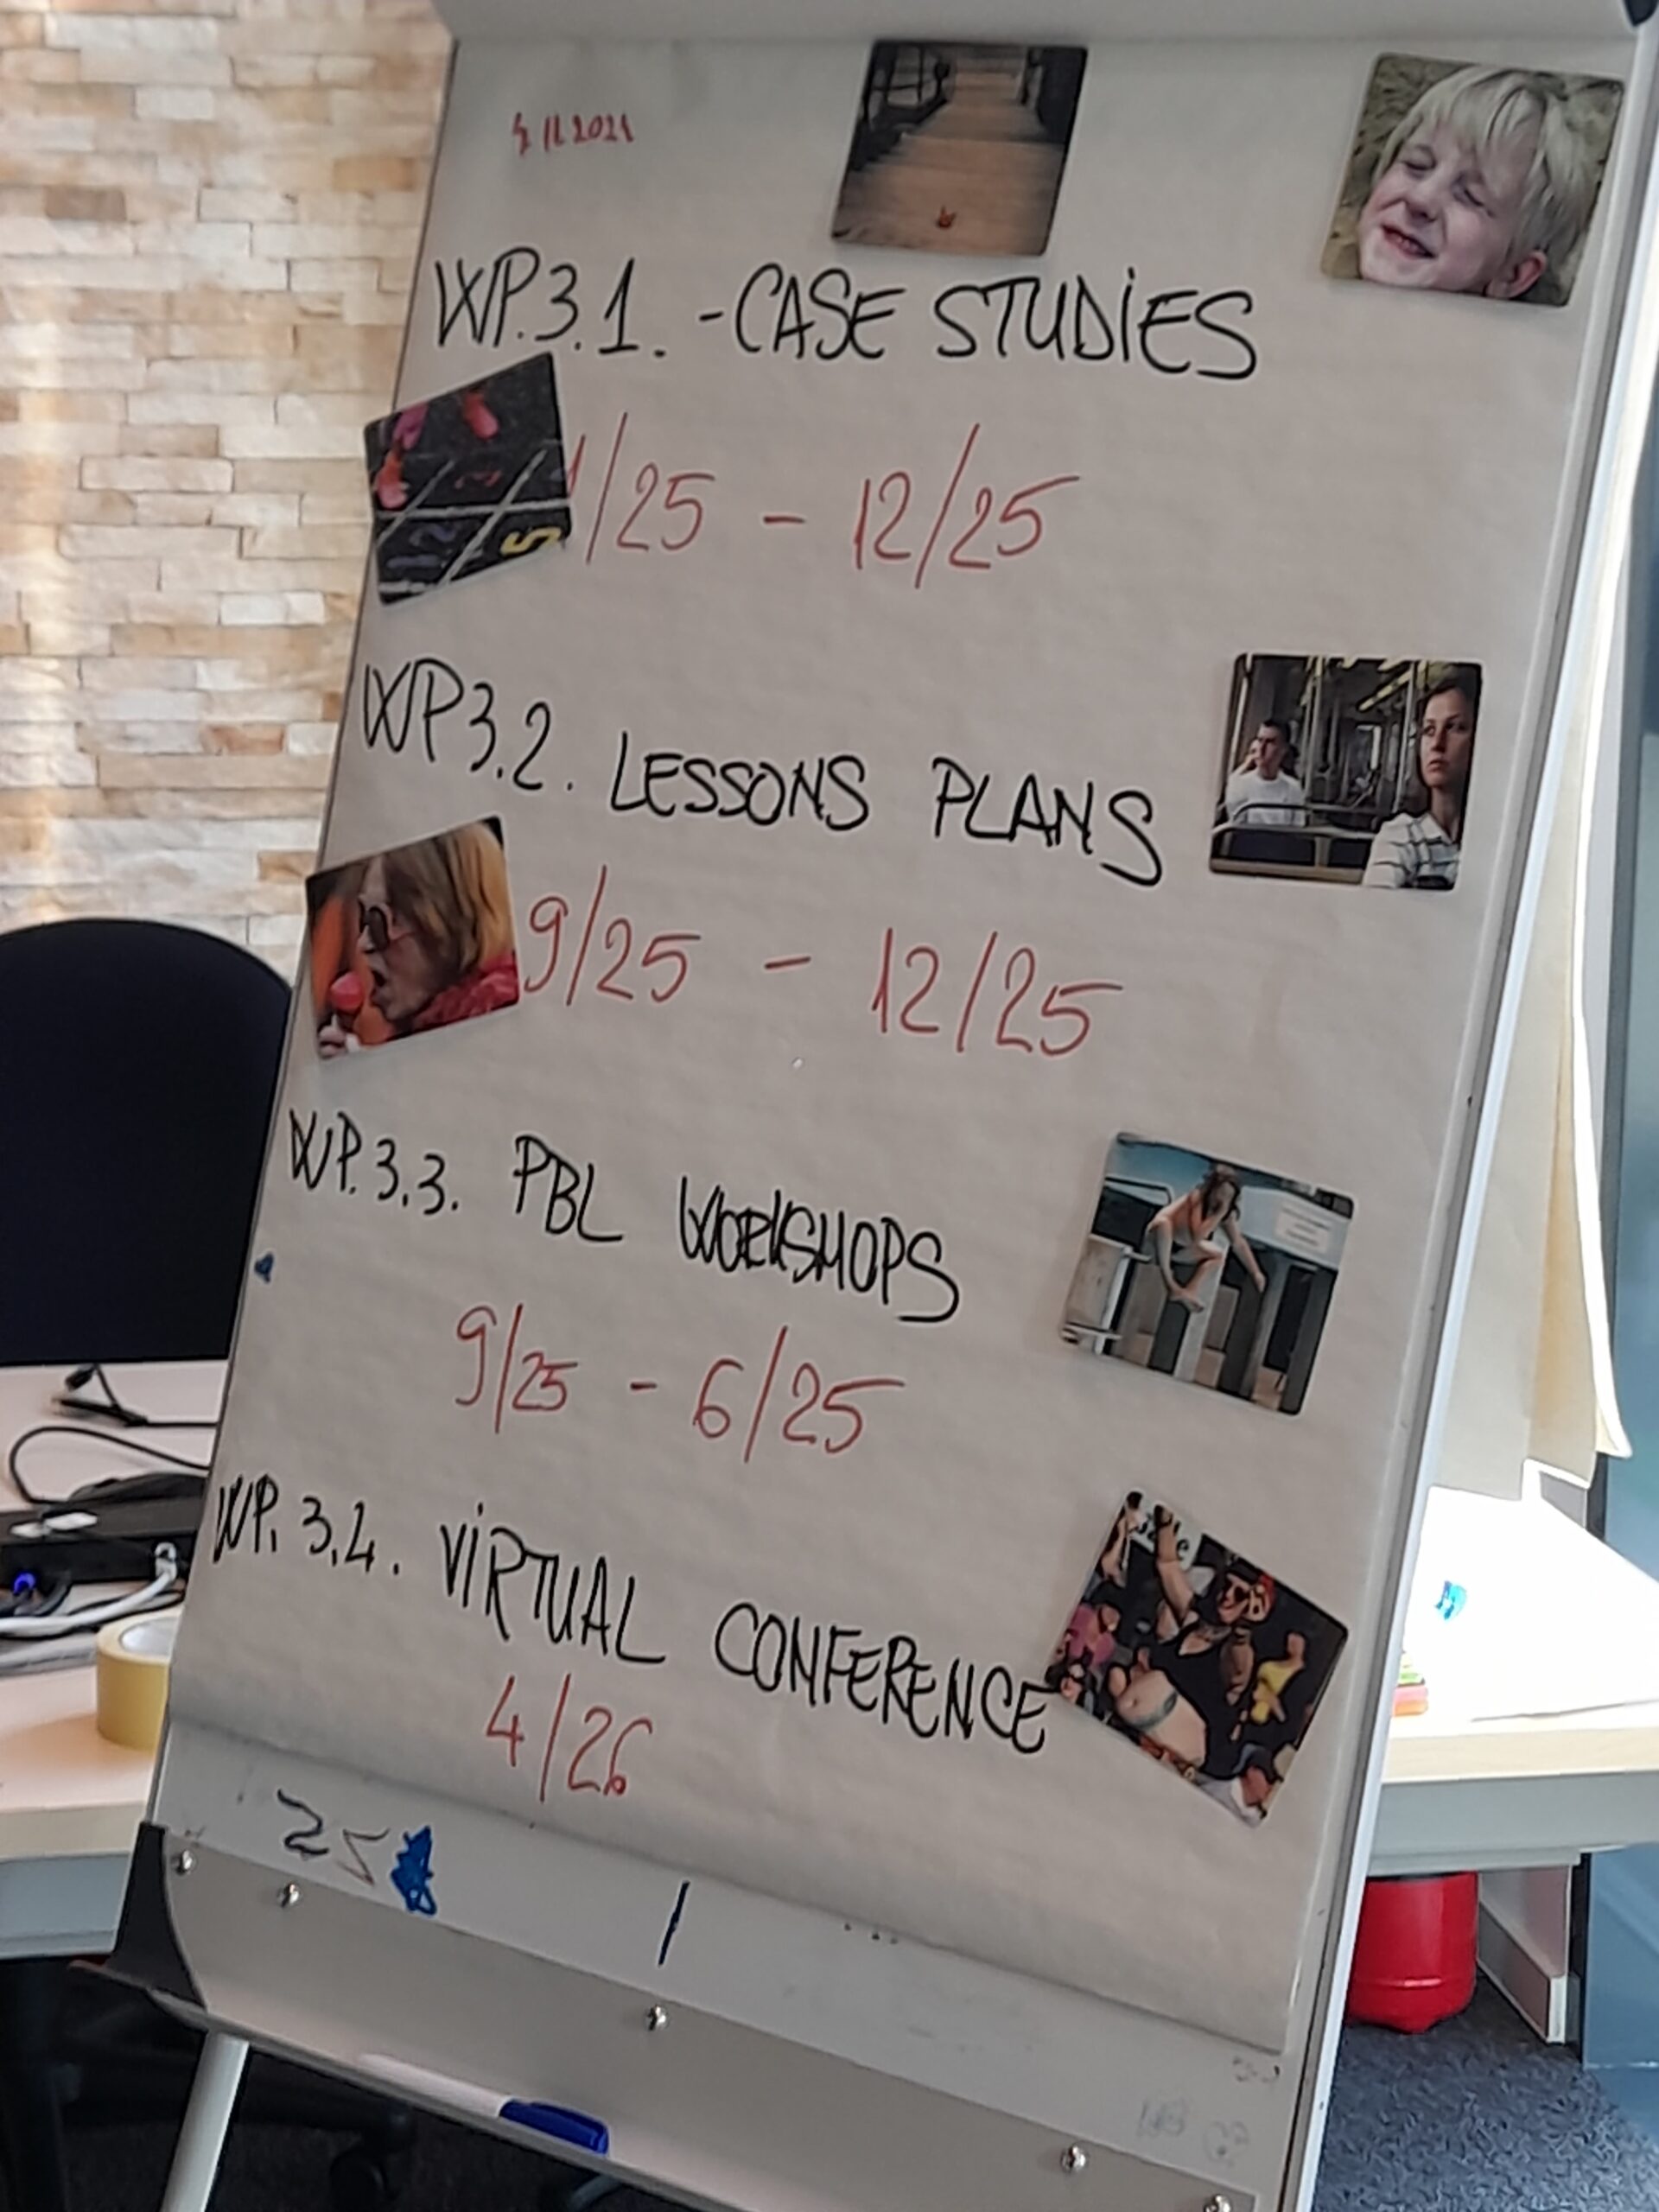 WP.3.1. - CASE STUDIES
1/25 - 12/25
WP3.2. LESSONS PLANS
9/25 - 12/25
WP.3.3. PBL WORKSHOPS
9/25 - 6/25
WP. 3.4. VIRTUAL CONFERENCE
4/26
25